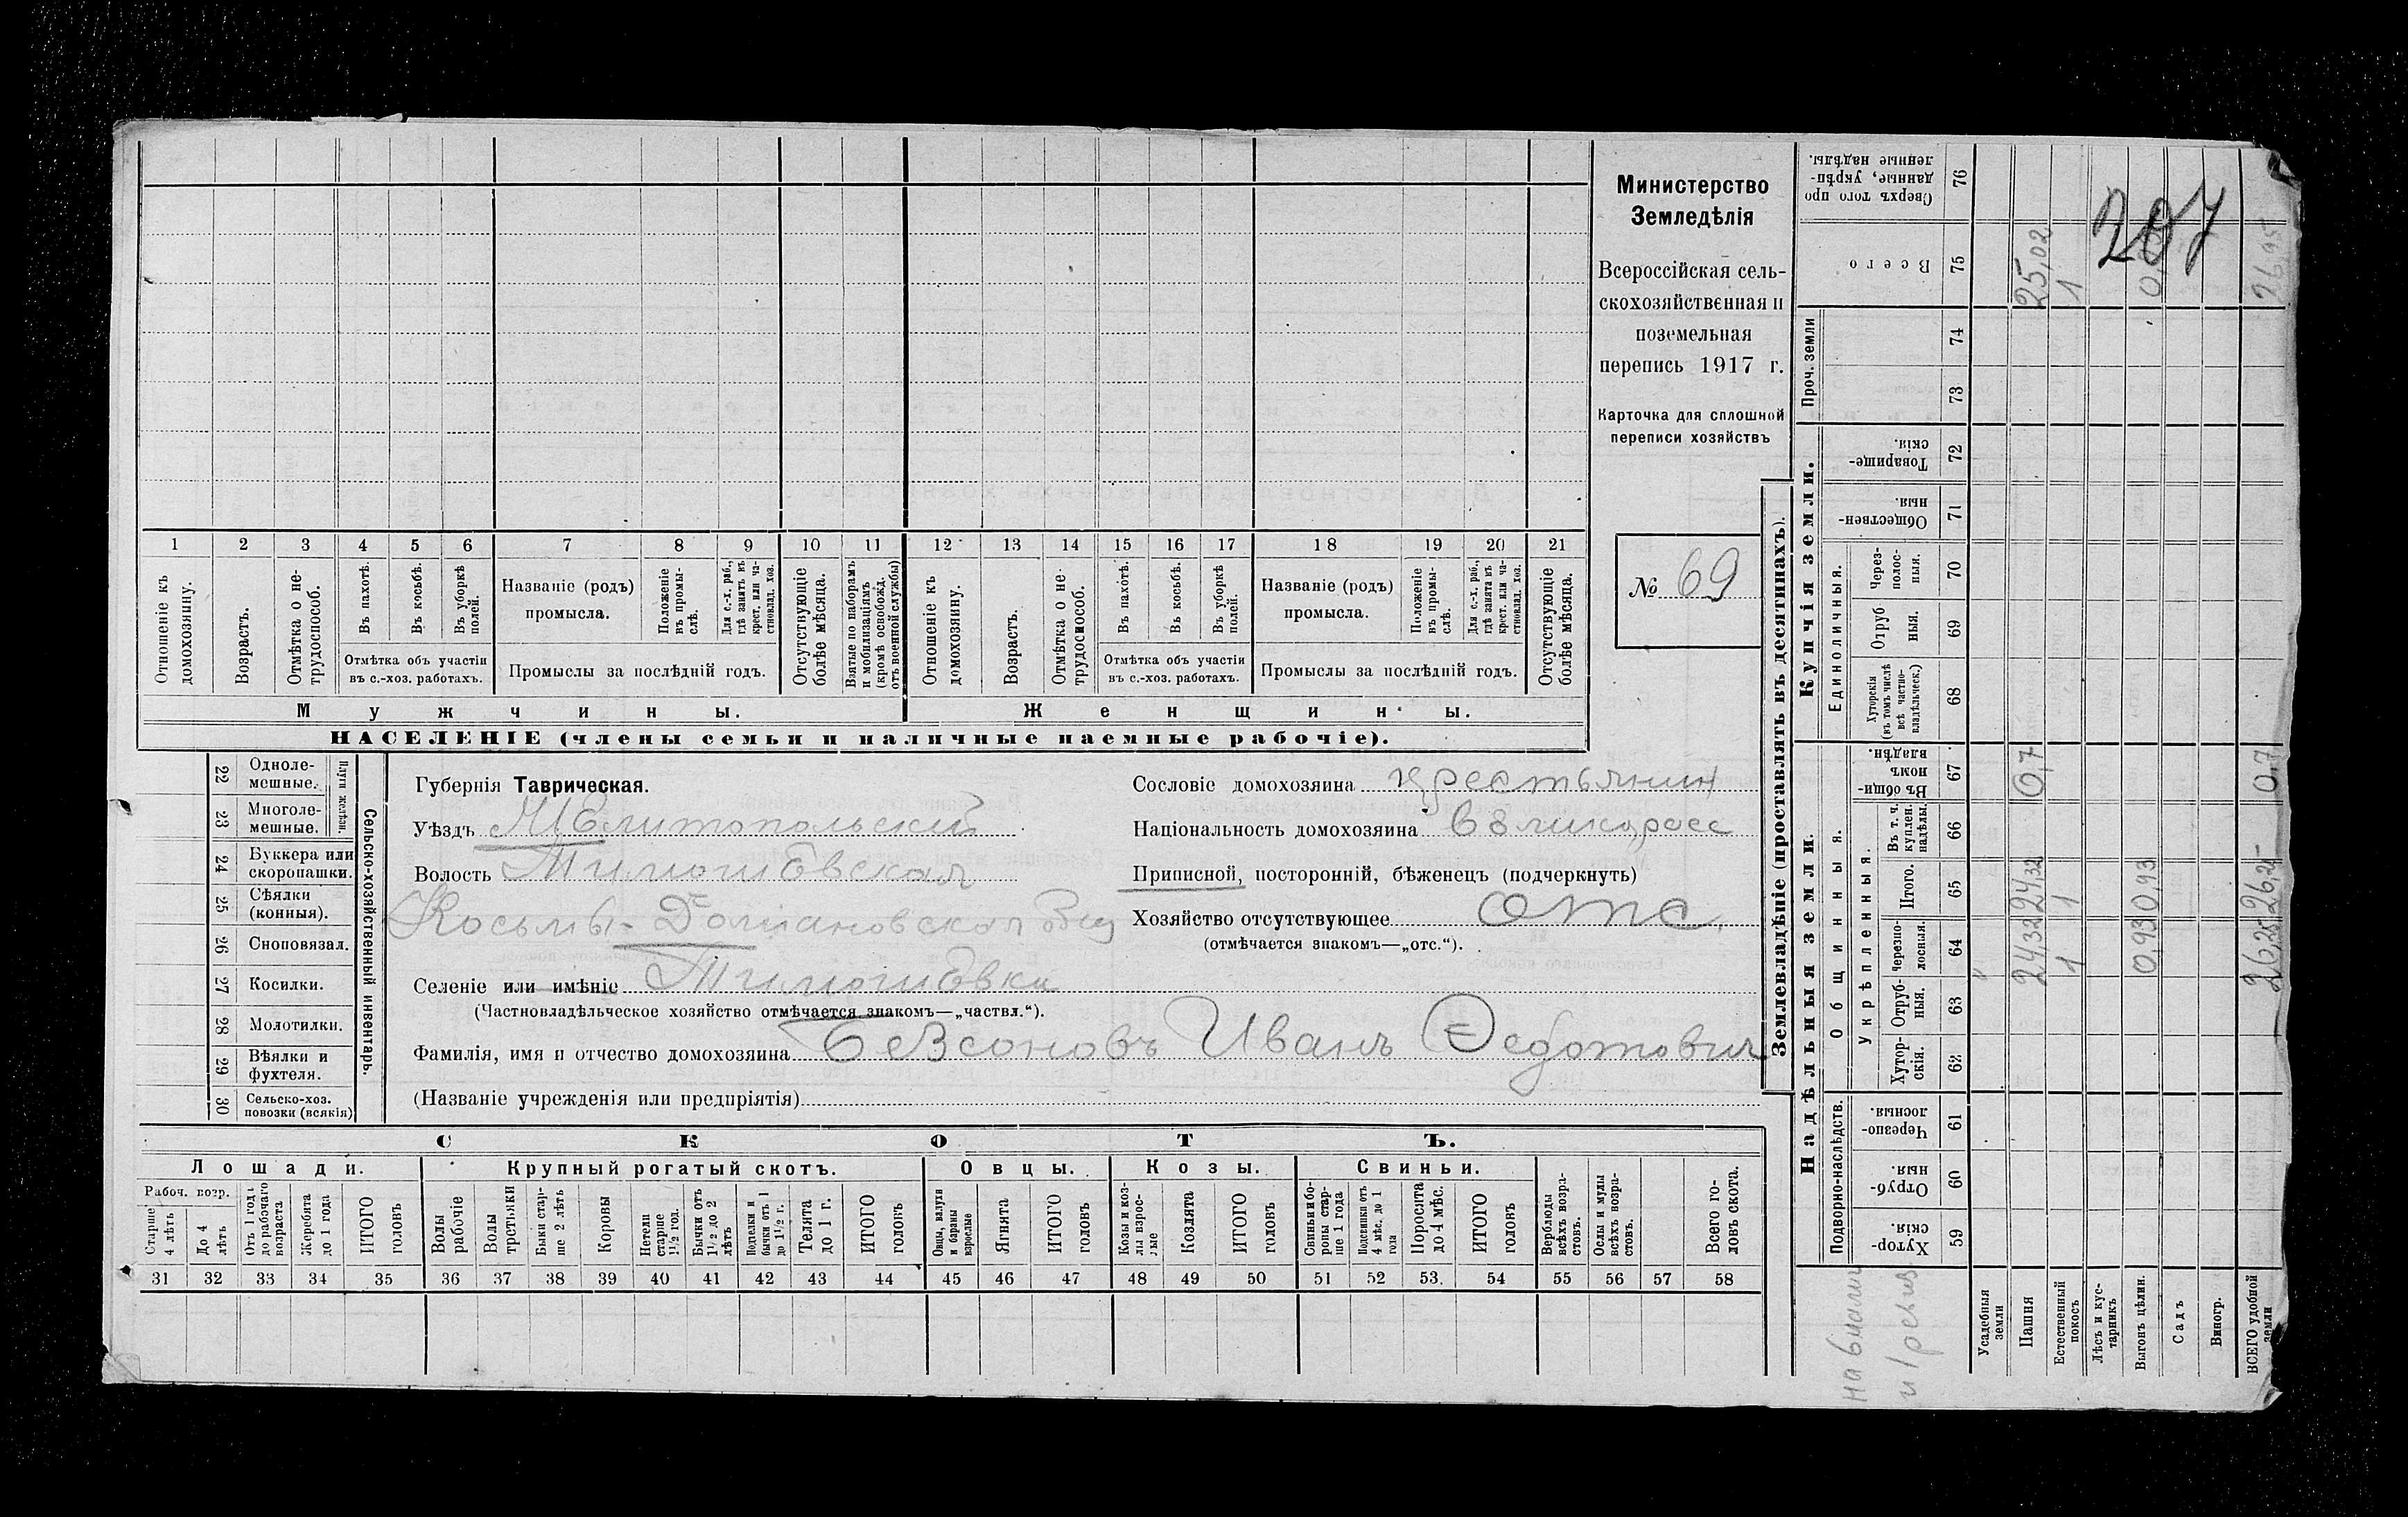 1 2 3 4 5 6 7 8 9 10 11 12 13 14 15 16 17 18 19 20 21
Отношеніе къ домохозяину.
Возрастъ.
Отмѣтка о не-
трудоспособ.
Въ пахотѣ.
Въ косьбѣ.
Въ уборкѣ
полей.
Отмѣтка объ участіи
въ с.-хоз. работахъ.
Названіе (родъ)
промысла.
Положеніе
въ промы-
слѣ.
Для с.-х. раб.,
гдѣ занятъ въ
крест. или ча-
стновлад. хоз.
Промыслы за послѣдній годъ.
Отсутствующіе
болѣе мѣсяца.
Взятые по наборамъ
и мобилизаціямъ
(кромѣ освобожд.
отъ военной службы)
Отношеніе къ
домохозяину.
Возрастъ.
Отмѣтка о не-
трудоспособ.
Въ пахотѣ.
Въ косьбѣ.
Въ уборкѣ
полей.
Отмѣтка объ участіи
въ с.-хоз. работахъ.
Названіе (родъ)
промысла.
Положеніе
въ промы-
слѣ.
Для с.-х. раб.,
гдѣ занята въ
крест. или ча-
стновлад. хоз.
Промыслы за послѣдній годъ.
Отсутствующіе
болѣе мѣсяца.
Мужчины.
Женщины.
НАСЕЛЕНІЕ (члены семьи и наличные наемные рабочіе).
Министерство
Земледѣлія
Всероссійская сель-
скохозяйственная и
поземельная
перепись 1917 г.
Карточка для сплошной
переписи хозяйствъ
№ 69
22 Одноле-
мешные.
23 Многоле-
мешные.
Плуги желѣзн.
24 Буккера или
скоропашки.
25 Сѣялки
(конныя).
26 Сноповязал.
27 Косилки.
28 Молотилки.
29 Вѣялки и
фухтеля.
30 Сельско-хоз.
повозки (всякія)
Сельско-хозяйственный инвентарь.
Губернія Таврическая.
Уѣздъ Мелитопольский
Волость Тимошевская
Косьмы-Домиановская общ
Селеніе или имѣніе Тимошевка
(Частновладѣльческое хозяйство отмѣчается знакомъ—„частвл.“).
Фамилія, имя и отчество домохозяина Безсоновъ Иванъ Федотович
(Названіе учрежденія или предпріятія)
Сословіе домохозяина крестьянин
Національность домохозяина великоросс
Приписной, посторонній, бѣженецъ (подчеркнуть)
Хозяйство отсутствующее отс.
(отмѣчается знакомъ—„отс.“).
СКОТЪ.
Лошади. Крупный рогатый скотъ. Овцы. Козы. Свиньи.
Рабоч. возр.
Старше
4 лѣтъ
До 4
лѣтъ
Отъ 1 года
до рабочаго
возраста
Жеребята
до 1 года
ИТОГО
головъ
Волы
рабочіе
Волы
третьяки
Быки стар-
ше 2 лѣтъ
Коровы
Нетели
старше
1½ год.
Бычки отъ
1½ до 2
лѣтъ
Подтелки и
бычки отъ 1
до 1½ г.
Телята
до 1 г.
ИТОГО
головъ
Овцы, валухи
и бараны
взрослые
Ягнята
ИТОГО
головъ
Козы и коз-
лы взрос-
лые
Козлята
ИТОГО
головъ
Свиньи и бо-
ровы стар-
ше 1 года
Подсвинки отъ
4 мѣс. до 1
года
Поросята
до 4 мѣс.
ИТОГО
головъ
Верблюды
всѣхъ возра-
стовъ.
Ослы и мулы
всѣхъ возра-
стовъ.
Всего го-
ловъ скота.
31 32 33 34 35 36 37 38 39 40 41 42 43 44 45 46 47 48 49 50 51 52 53 54 55 56 57 58
Землевладѣніе (проставлять въ десятинахъ).
Надѣльныя земли.
Купчія земли.
Проч. земли
Подворно-наслѣдств.
Общинныя.
Укрѣпленныя.
Единоличныя.
Хутор-
скія. 59
Отруб-
ныя. 60
Черезпо-
лосныя. 61
Хутор-
скія. 62
Отруб-
ныя. 63
Черезпо-
лосныя. 64
Итого. 65
Въ т. ч.
куплен.
надѣлы. 66
Въ общин-
номъ
владѣн. 67
Хуторскія
(въ томъ числѣ
всѣ частно-
владѣльческ.) 68
Отруб
ныя. 69
Через-
полос-
ныя. 70
Обществен-
ныя. 71
Товарище-
скія. 72
73
74
Всего 75
Сверхъ того про
данные, укрѣп-
ленные надѣлы. 76
207
Усадебныя
земли
Пашня 24,32 24,32 0,7 25,02
Естественный
покосъ 1 1 1
Лѣсъ и кус-
тарникъ
Выгонъ цѣлин. 0,93 0,93
Садъ
Виногр.
ВСЕГО удобной
земли 26,25 26,25 0,7 26,95